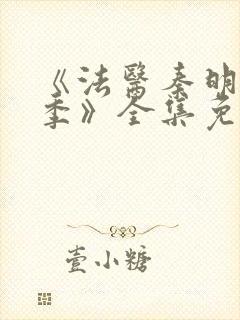 《法醫秦明
季》全集免
壹小糖